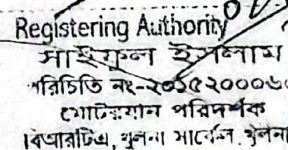 Registering Authority
সাইফুল ইসলাম
পরিচিতি নং-২০১৫২০০০৬
মোটরযান পরিদর্শক
বিআরটিএ, খুলনা সার্কেল, খুলনা